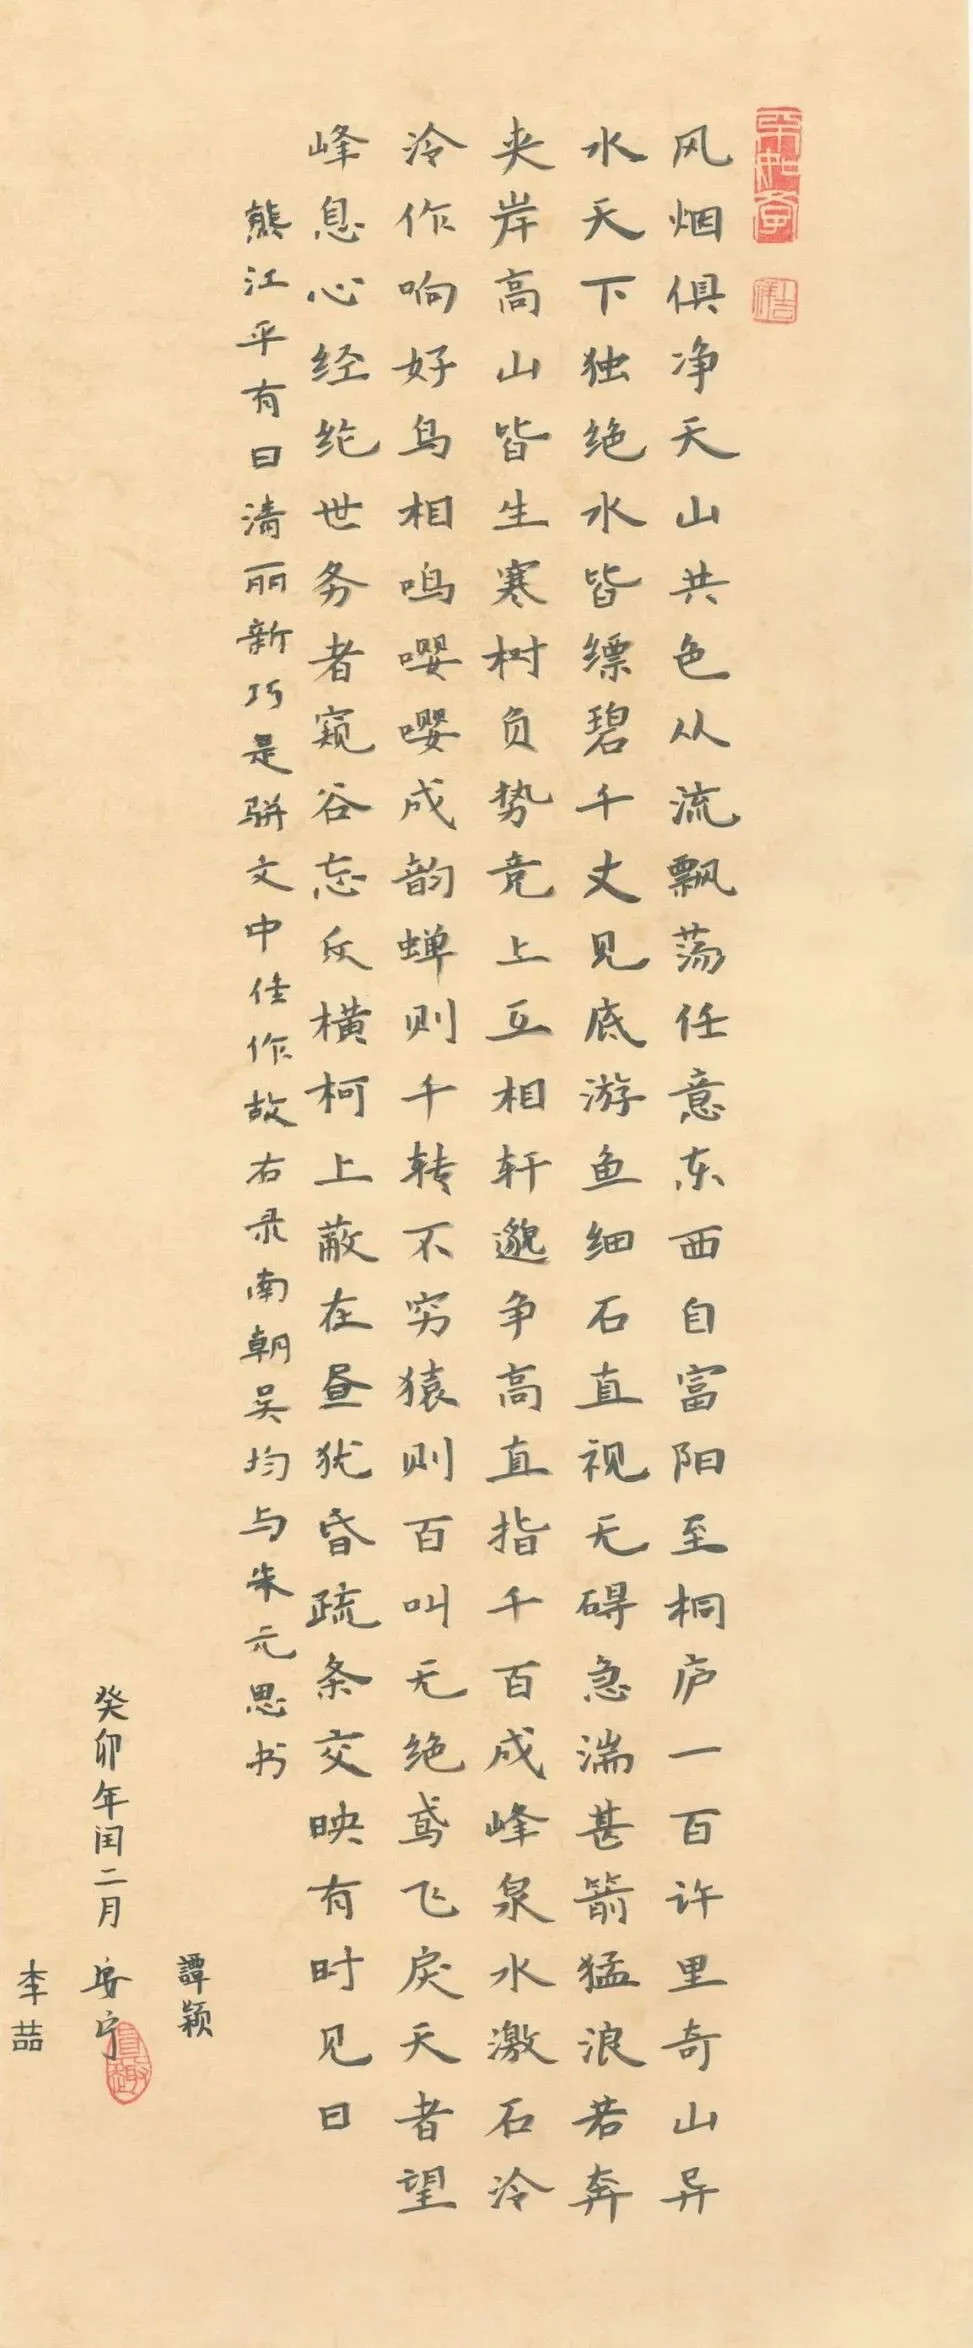 风烟俱净天山共色从流飘荡任意东西自富阳至桐庐一百许里奇山异
水天下独绝水皆缥碧千丈见底游鱼细石直视无碍急湍甚箭猛浪若奔
夹岸高山皆生寒树负势竞上互相轩邈争高直指千百成峰泉水激石泠
泠作响好鸟相鸣嘤嘤成韵蝉则千转不穷猿则百叫无绝鸢飞戾天者望
峰息心经纶世务者窥谷忘反横柯上蔽在昼犹昏疏条交映有时见日
熊江平有曰清丽新巧是骈文中佳作故右录南朝吴均与朱元思书
譚颖
癸卯年闰二月 安宁
真趣
李喆